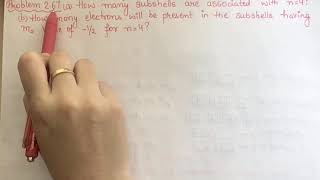 Problem 2.67 (a) How many subshells are associated with n=4?
(b) How many electrons will be present in the subshells having
ms of -1/2 for n=4?